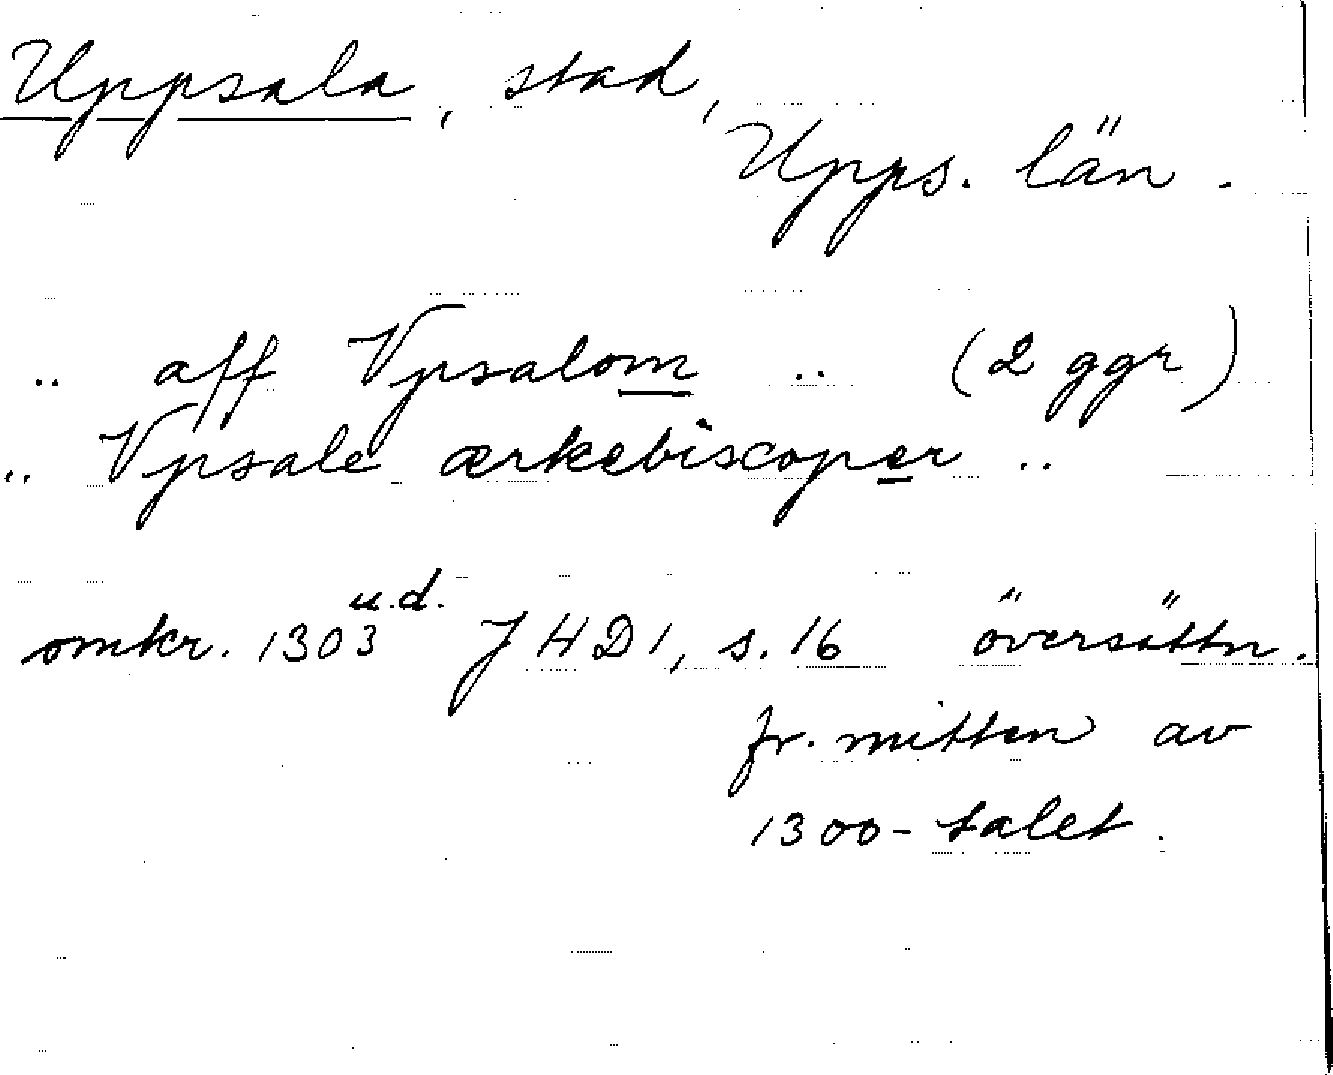 Uppsala, stad,
Upps. län.
.. aff Vpsalom .. (2 ggr)
.. Vpsale ærkebiscoper ..
omkr. 1303 u.d. JHD 1, s. 16 översättn.
fr. mitten av
1300-talet.